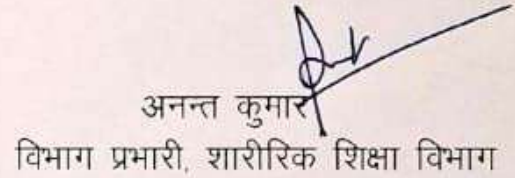 अनन्त कुमार
विभाग प्रभारी, शारीरिक शिक्षा विभाग